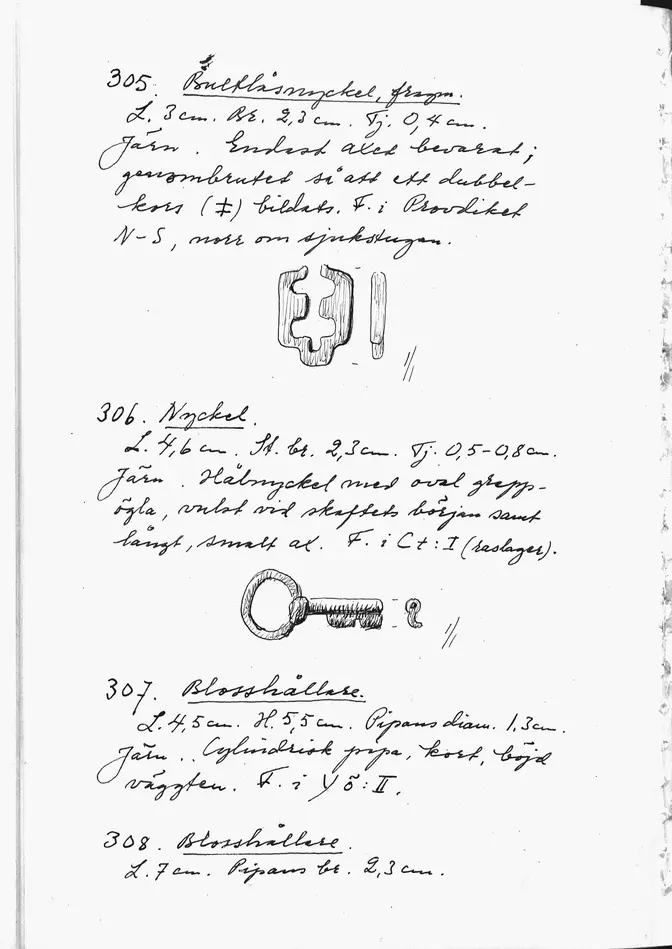 305. Bultlåsnyckel, fragm.
L. 3 cm. Br. 2,3 cm. Tj. 0,4 cm.
Järn. Endast axet bevarat;
genombrutet så att ett dubbel-
kors (‡) bildats. F. i Provdiket
N-S, norr om sjukstugan.
1/1
306. Nyckel.
L. 4,6 cm. St. br. 2,3 cm. Tj. 0,5-0,8 cm.
Järn. Hålnyckel med oval grepp-
ögla, vulst vid skaftets början samt
långt, smalt ax. F. i Ct: I (raslager).
1/1
307. Blosshållare.
L. 4,5 cm. H. 5,5 cm. Pipans diam. 1,3 cm.
Järn. Cylindrisk pipa, kort, böjd
väggten. F. i Yö: II.
308. Blosshållare.
L. 7 cm. Pipans br. 2,3 cm.